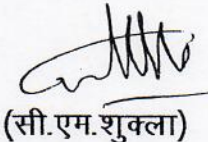 (सी.एम.शुक्ला)